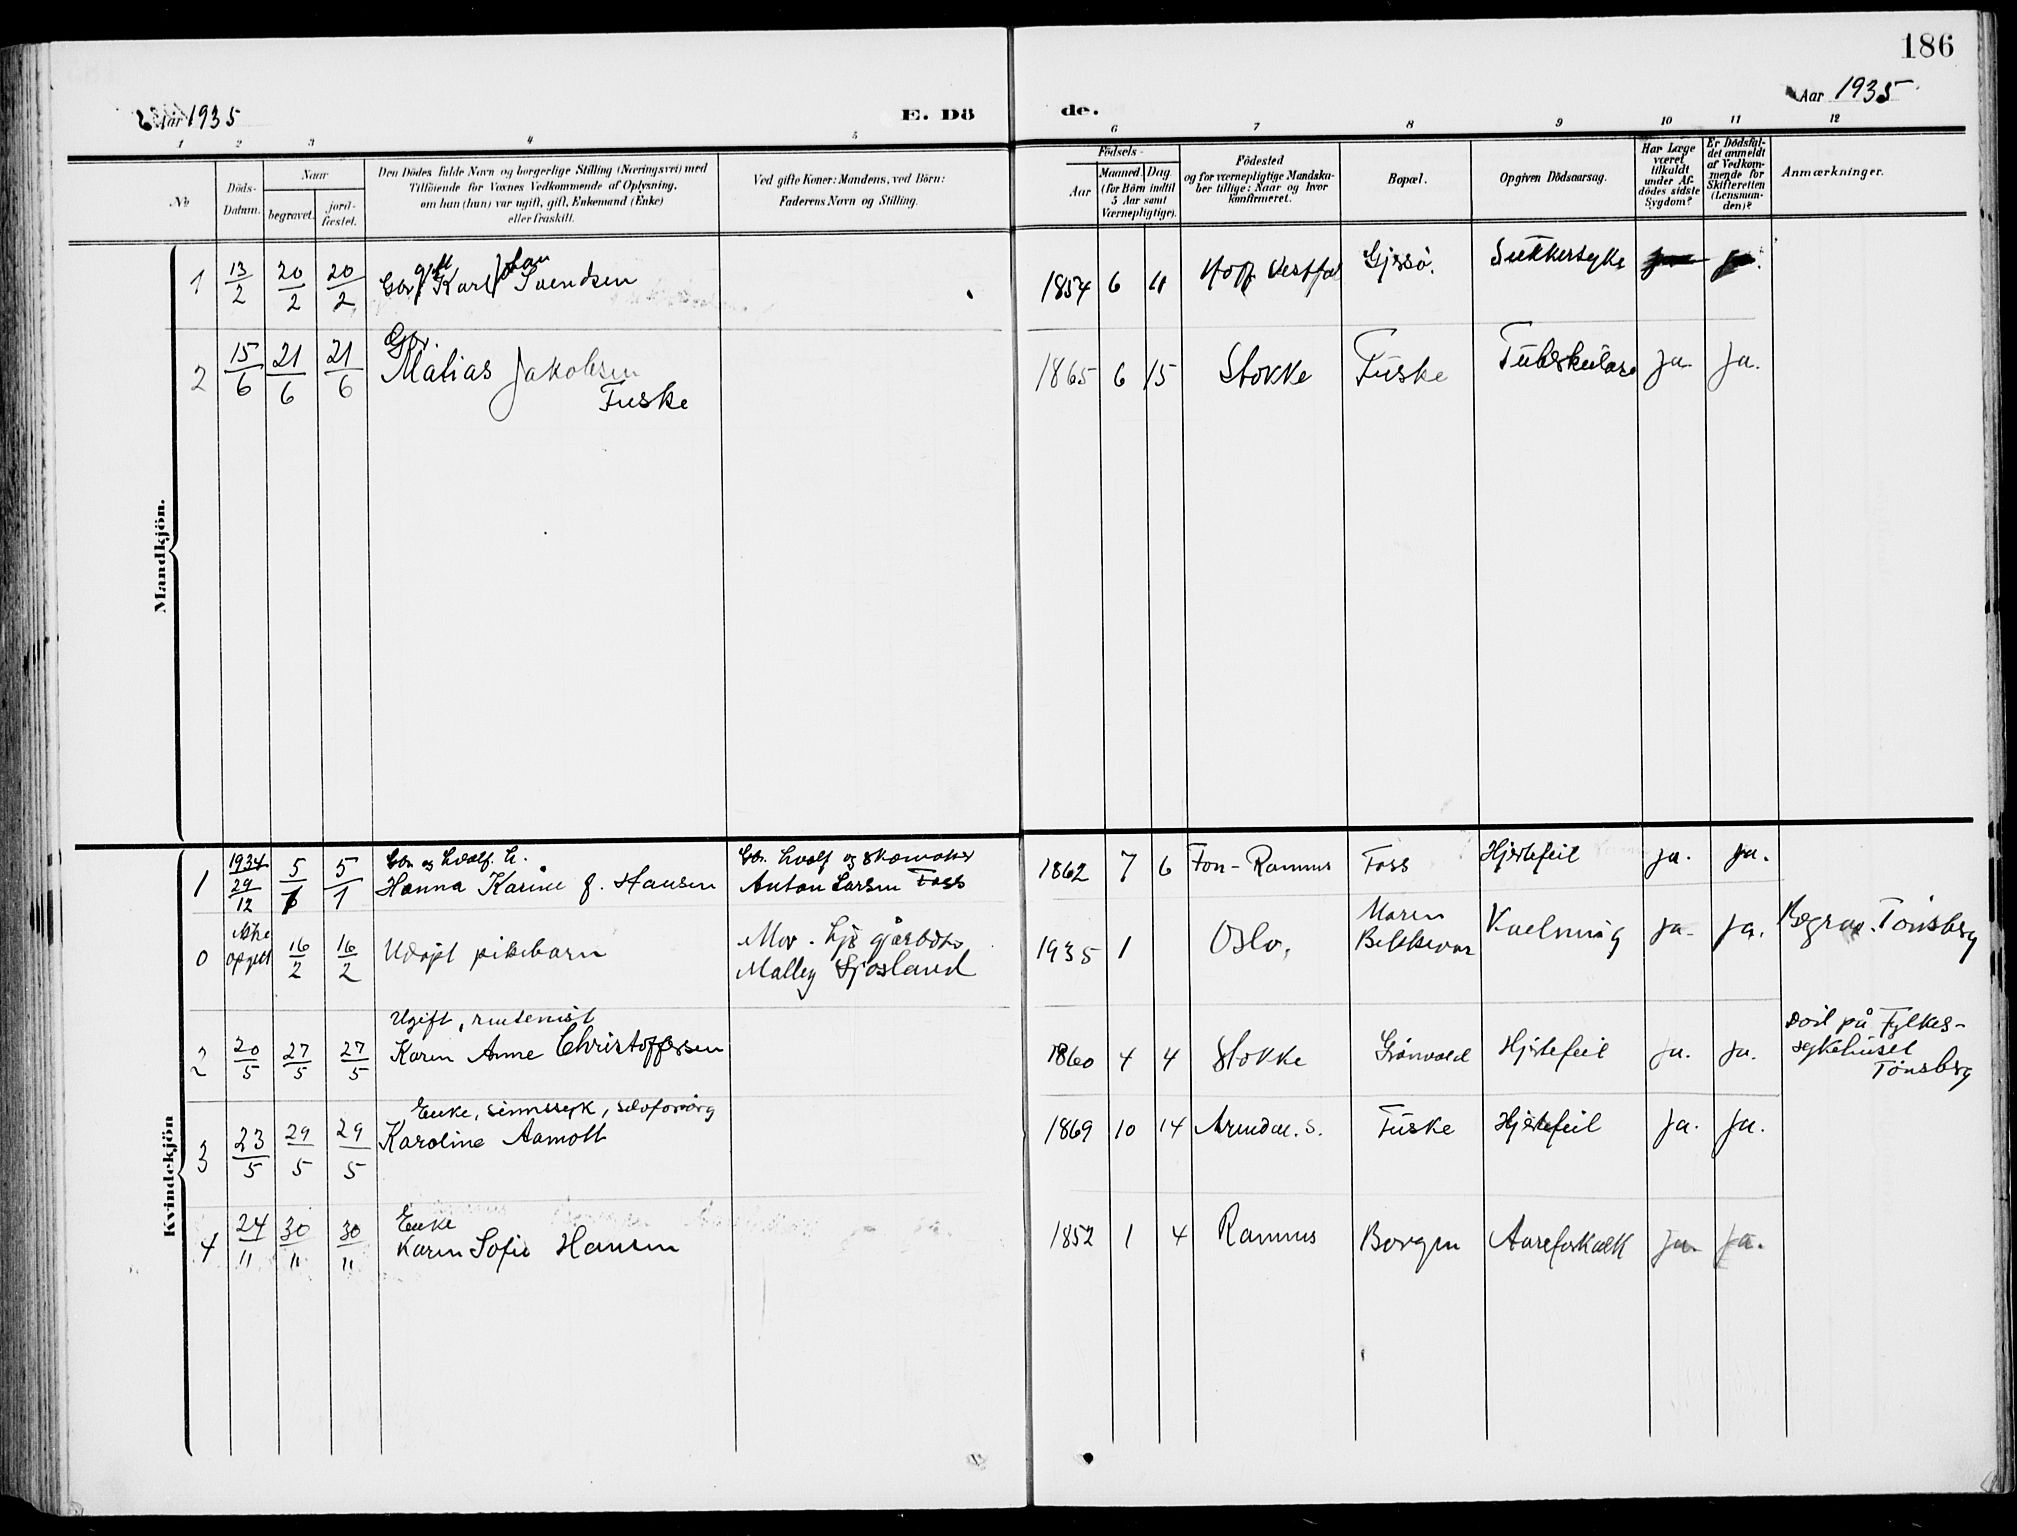 186
Aar 1935
E. Dö
de.
Aar 1935
1 2 3 4 5 6 7 8 9 10 11 12
No
Döds-
Datum.
Naar
begravet.
jord-
fæstet.
Den Dödes fulde Navn og borgerlige Stilling (Næringsvei) med
Tilföiende for Voxnes Vedkommende af Oplysning,
om han (hun) var ugift, gift, Enkemand (Enke)
eller fraskilt.
Ved gifte Koner: Mandens, ved Börn:
Faderens Navn og Stilling.
Födsels-
Aar
Maaned.
Dag.
(for Börn indtil
5 Aar samt
Værnepligtige).
Födested
og for værnepligtige Mandska-
ber tillige: Naar og hvor
konfirmeret.
Bopæl.
Opgiven Dödsaarsag.
Har Læge
været
tilkaldt
under Af-
dödes sidste
Sygdom?
Er Dödsfal-
det anmeldt
af Vedkom-
mende for
Skifteretten
(Lensman-
den)?
Anmærkninger.
Mandkjön.
gift Johan
1 13/2 20/2 20/2 Gbr. Karl Svendsen 1854 6 11 Hof, Vestfol Gjessö. Sukkersyke
Gbr.
2 15/6 21/6 21/6 Matias Jakobsen 1865 6 15 Stokke Fuske Tuberkulose Ja. Ja.
Fuske
Kvindekjön
1934 Gbr. og hvalf. h. Gbr. hvalf og skomaker
1 29/12 5/1 5/1 Hanna Karine f. Hansen Anton Larsen Foss 1862 7 6 Fon-Ramnes Foss Hjertefeil Ja. Ja.
Ikke Mor. hjs gårbdts Maren
0 opgitt 16/2 16/2 Udøpt pikebarn Malley Sjosland 1935 1 Oslo, Kvelning Ja. Ja. Begrav. Tönsberg
Ugift, rentenist Död på Fylkes-
2 20/5 27/5 27/5 Karen Anne Christoffersen 1860 4 4 Stokke Grönvold Hjertefeil Ja. Ja. sykehuset
Tönsberg
Enke, sinnssyk, selvforsörg
3 23/5 29/5 29/5 Karoline Aamott 1869 10 14 Arendal. S. Fuske Hjertefeil Ja. Ja.
Enke
4 24/11 30/11 30/11 Karen Sofie Hansen 1852 1 4 Ramnes Borgen Aareforkalk Ja. Ja.